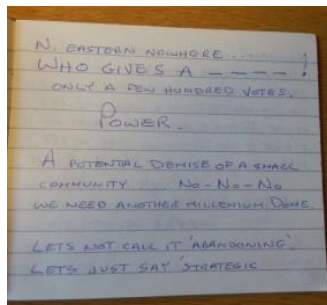 N. EASTERN NOWHERE ....
WHO GIVES A ---- !
ONLY A FEW HUNDRED VOTES.
POWER.
A POTENTIAL DEMISE OF A SMALL
COMMUNITY ..... NO - NO - NO
WE NEED ANOTHER MILLENIUM DOME.
LETS NOT CALL IT 'ABANDONING'
LETS JUST SAY 'STRATEGIC